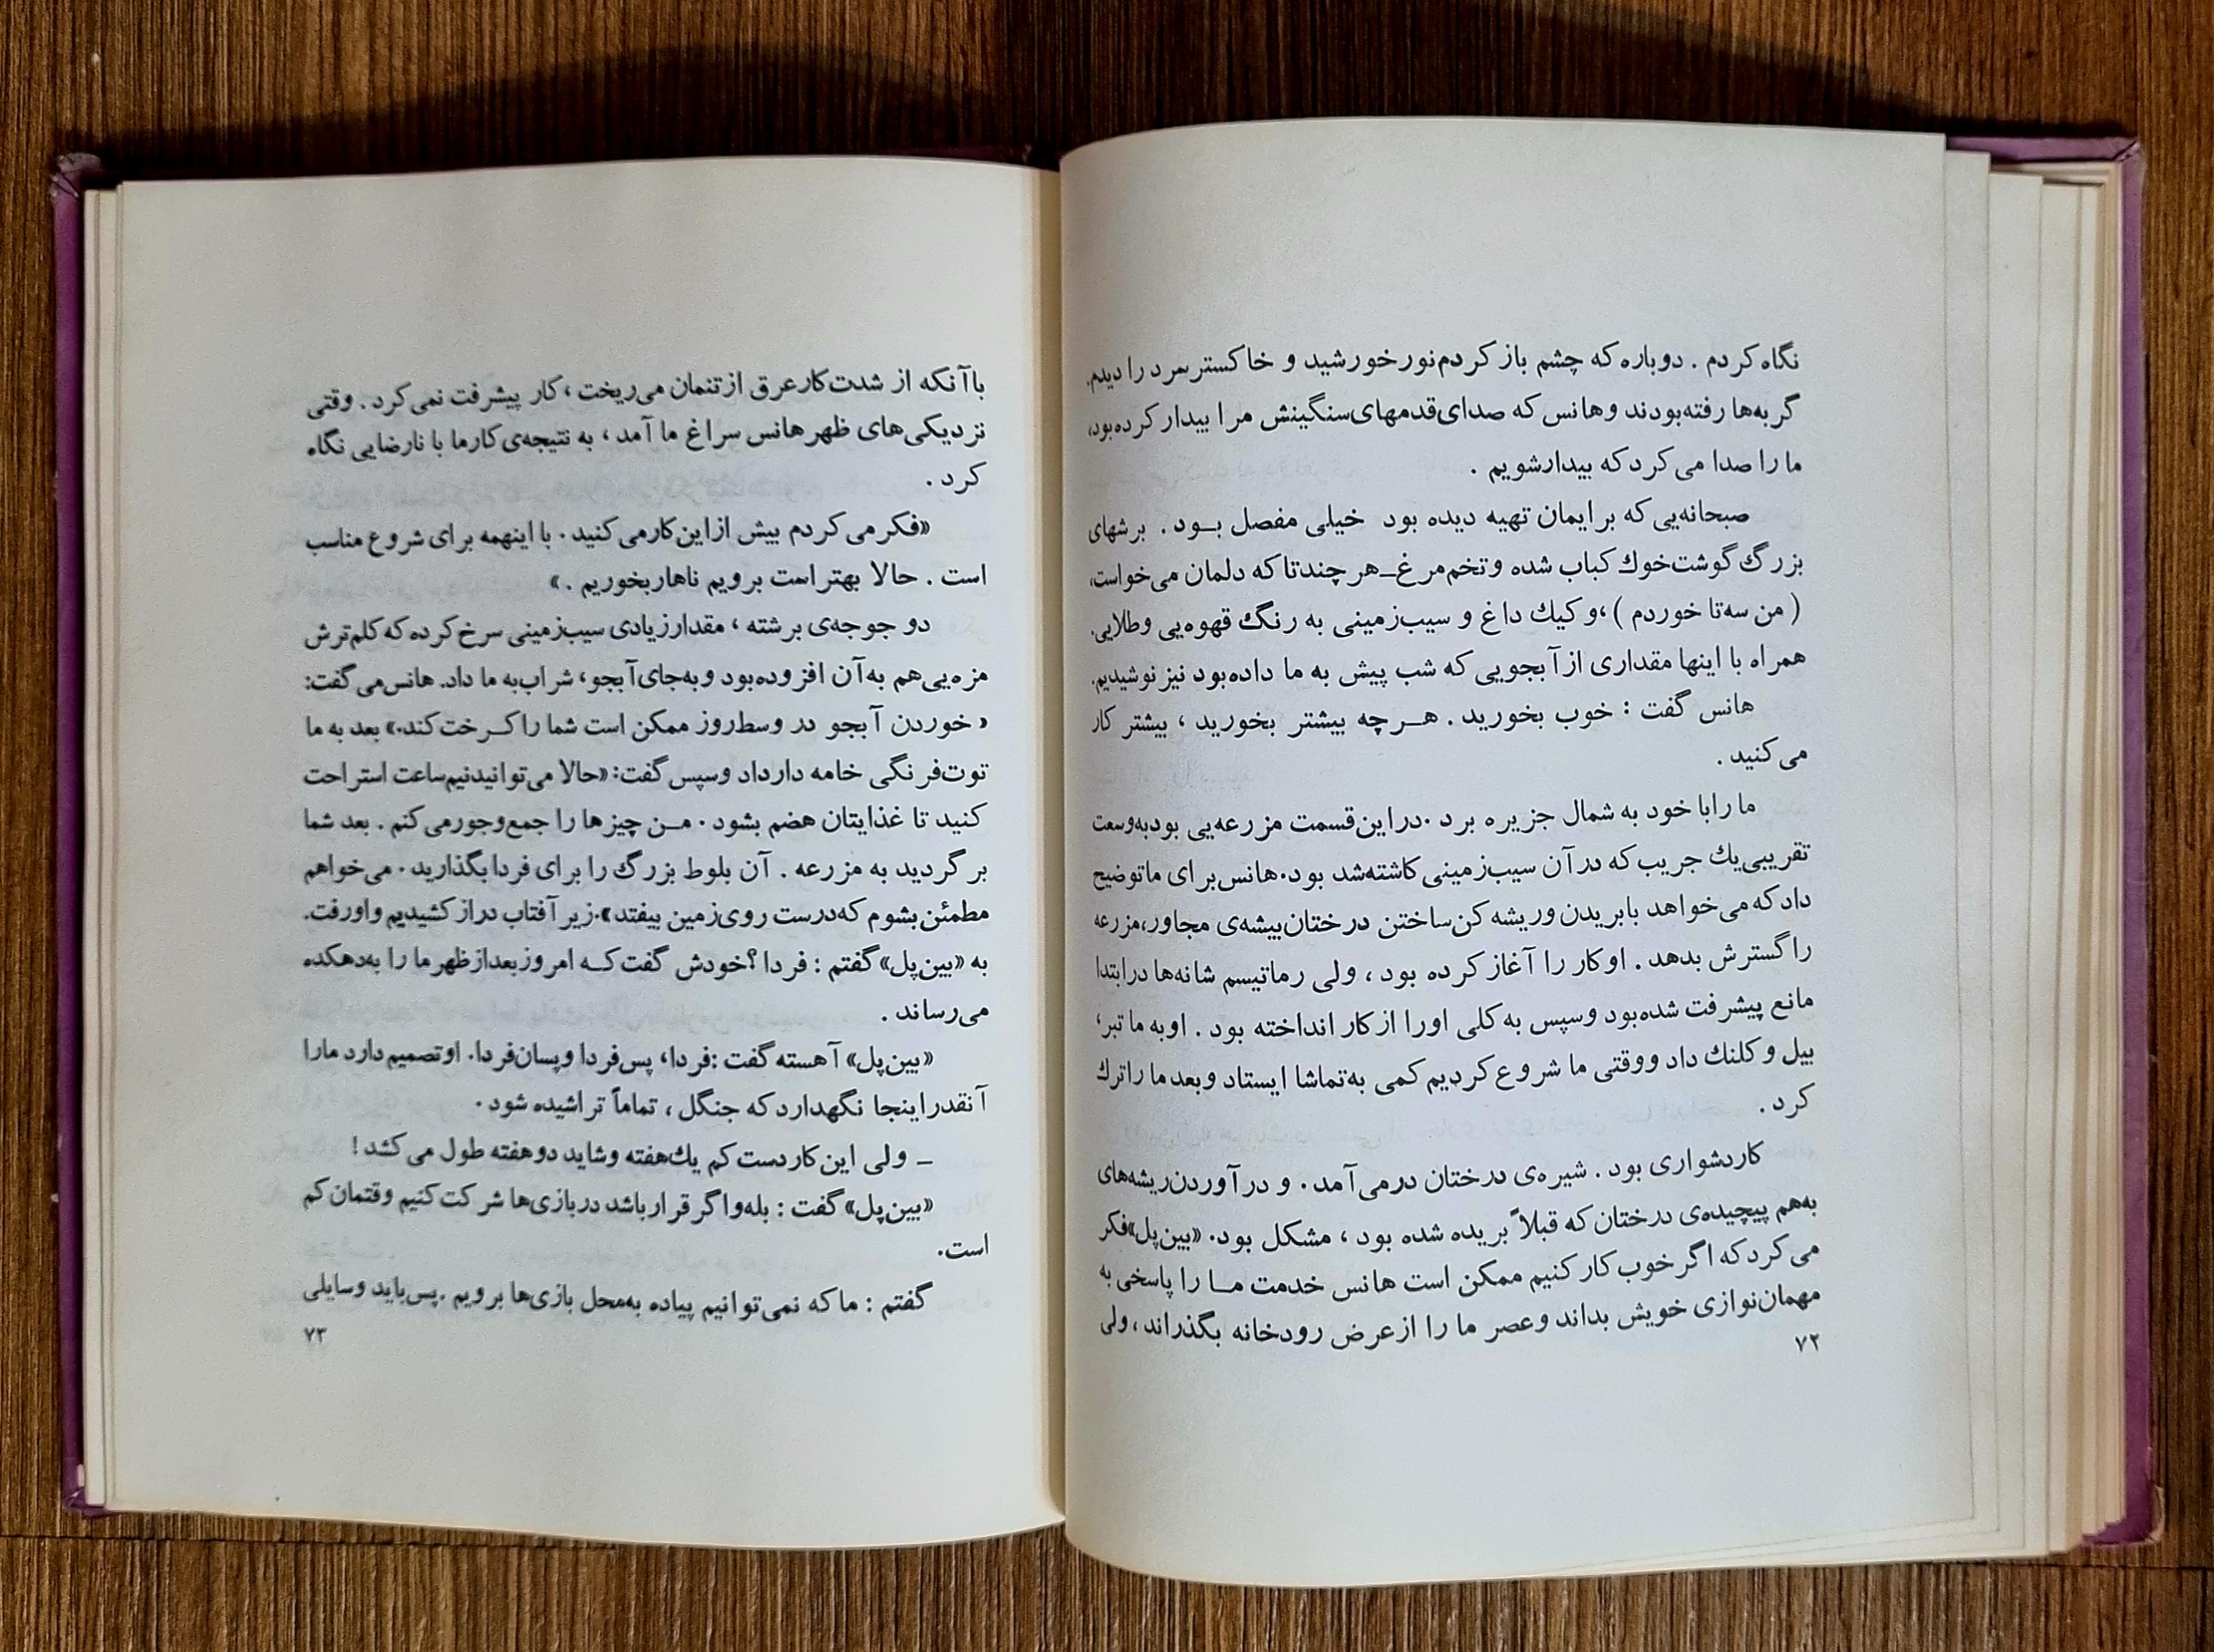 نگاه کردم . دوباره که چشم باز کردم نور خورشید و خاکستر سرد را دیدم.
گربه‌ها رفته‌بودند وهانس که صدای‌قدمهای‌سنگینش مرا بیدار کرده‌بود،
ما را صدا می‌کرد که بیدارشویم .
صبحانه‌یی که برایمان تهیه دیده بود خیلی مفصل بــود . برشهای
بزرگ گوشت‌خوك کباب شده وتخم‌مرغ‌ــ‌هرچندتا که دلمان می‌خواست،
( من سه‌تا خوردم ) ،وکیك داغ و سیب‌زمینی به رنگ قهوه‌یی وطلایی.
همراه با اینها مقداری از آبجویی که شب پیش به ما داده‌بود نیز نوشیدیم.
هانس گفت : خوب بخورید . هــرچه بیشتر بخورید ، بیشتر کار
می‌کنید .
ما رابا خود به شمال جزیره برد .دراین‌قسمت مزرعه‌یی بودبه‌وسعت
تقریبی‌یك جریب که درآن سیب‌زمینی کاشته‌شد بود.هانس‌برای ماتوضیح
داد که می‌خواهد بابریدن وریشه کن‌ساختن درختان‌بیشه‌ی مجاور،مزرعه
را گسترش بدهد . اوکار را آغاز کرده بود ، ولی رماتیسم شانه‌ها درابتدا
مانع پیشرفت شده‌بود وسپس به‌کلی اورا از کار انداخته بود . اوبه ما تبر،
بیل وکلنك داد ووقتی ما شروع کردیم کمی به‌تماشا ایستاد وبعد ما راترك
کرد .
کاردشواری بود . شیره‌ی درختان درمی‌آمد . و درآوردن‌ریشه‌های
به‌هم پیچیده‌ی درختان که قبلاً بریده شده بود ، مشکل بود. «بین‌پل»فکر
می‌کرد که اگر خوب کار کنیم ممکن است هانس خدمت مــا را پاسخی به
مهمان‌نوازی خویش بداند وعصر ما را ازعرض رودخانه بگذراند ، ولی
۷۲
باآنکه از شدت‌کارعرق ازتنمان می‌ریخت ، کار پیشرفت نمی‌کرد . وقتی
نزدیکی‌های ظهر هانس سراغ ما آمد ، به نتیجه‌ی کارما با نارضایی نگاه
کرد .
«فکر می‌کردم بیش ازاین کارمی‌کنید . با اینهمه برای شروع مناسب
است . حالا بهتر است برویم ناهار بخوریم . »
دو جوجه‌ی برشته ، مقدارزیادی سیب‌زمینی سرخ کرده که کلم‌ترش
مزه‌یی‌هم به‌آن افزوده‌بود وبه‌جای آبجو، شراب‌به ما داد. هانس‌می‌گفت:
« خوردن آبجو در وسط‌روز ممکن است شما را کــرخت کند.» بعد به ما
توت‌فرنگی خامه دارداد وسپس گفت: «حالا می‌توانیدنیم‌ساعت استراحت
کنید تا غذایتان هضم بشود . مــن چیزها را جمع‌وجورمی‌کنم . بعد شما
برگردید به مزرعه . آن بلوط بزرگ را برای فردا بگذارید . می‌خواهم
مطمئن‌بشوم که‌درست روی‌زمین بیفتد».زیر آفتاب دراز کشیدیم واورفت.
به «بین‌پل» گفتم : فردا ؟خودش گفت کــه امروز بعدازظهر ما را به‌دهکده
می‌رساند .
«بین‌پل» آهسته گفت :فردا، پس‌فردا وپسان‌فردا. اوتصمیم دارد مارا
آنقدراینجا نگهدارد که جنگل ، تماماً تراشیده شود .
ــ ولی این کاردست کم یك‌هفته وشاید دوهفته طول می‌کشد !
«بین‌پل» گفت : بله‌واگر قرارباشد دربازی‌ها شرکت کنیم وقتمان کم
است.
گفتم : ما که نمی‌توانیم پیاده به‌محل بازی‌ها برویم .پس‌باید وسایلی
۷۳